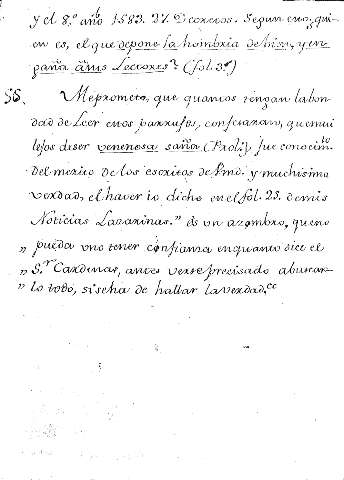 y el 8.º año 1583. 27. Decretos. Segun eso, qui-
en es, el que depone la hombria de bien, y en-
gaña a mis Lectores? (fol. 3.º)
55. Me prometo, que quantos tengan la bon-
dad de Leer esos parrafos, confesaran, que mui
lejos de ser venenosa saña (Prol.) fue conocim.to
del merito de los escritos de Vmd. y muchisima
verdad, el haver io dicho en el fol. 23. de mis
Noticias Lazarinas. "Es un asombro, que no
" pueda uno tener confianza en quanto dice el
" S.r Cardenas, antes verse precisado a buscar-
" lo todo, si se ha de hallar la verdad."